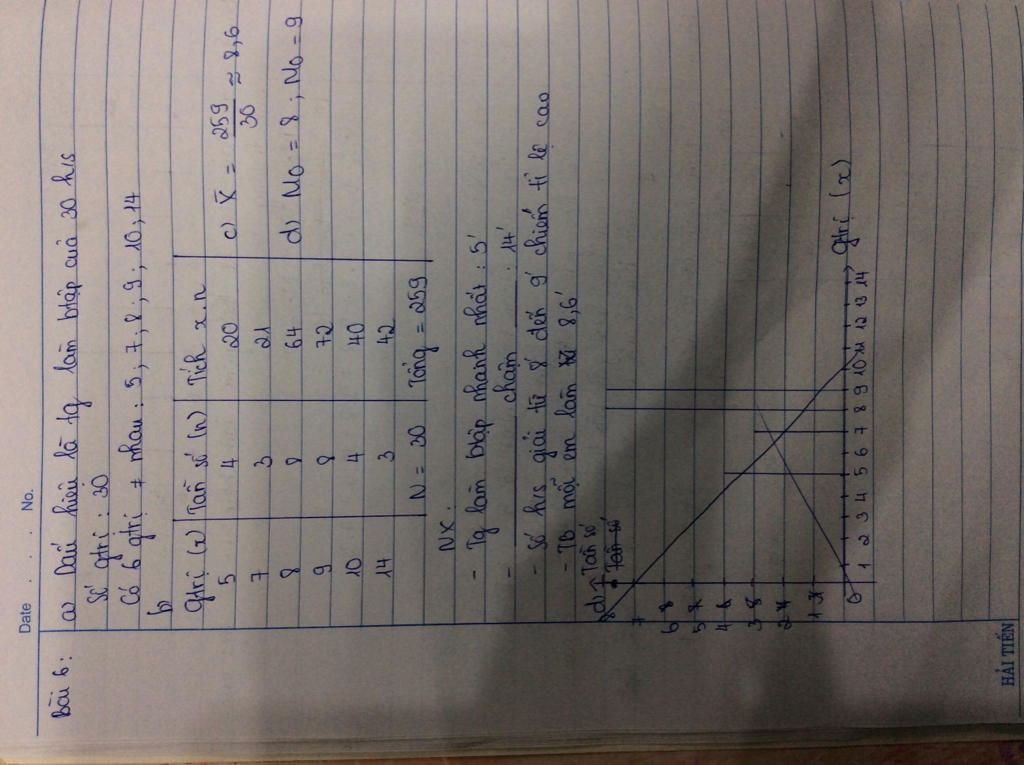 Date . . . No.
Bài 6:
a) Dấu hiệu là tg làm btập của 30 h/s
Số gtrị : 30
Có 6 gtrị ≠ nhau : 5, 7, 8, 9, 10, 14
b
Gtrị (x) Tần số (n) Tích x.n
5 4 20
7 3 21
8 8 64
9 8 72
10 4 40
14 3 42
N = 30 Tổng = 259
c) X̄ = 259/30 ≈ 8,6
d) Mo = 8 ; Mo = 9
NX:
- Tg làm btập nhanh nhất : 5'
- chậm : 14'
- Số h/s giải từ 8' đến 9' chiếm tỉ lệ cao
- TB mỗi em làm 8,6'
d) Tần số
Tần số
8
7
6
5
4
3
2
1
0 1 2 3 4 5 6 7 8 9 10 11 12 13 14
Gtrị (x)
HẢI TIẾN